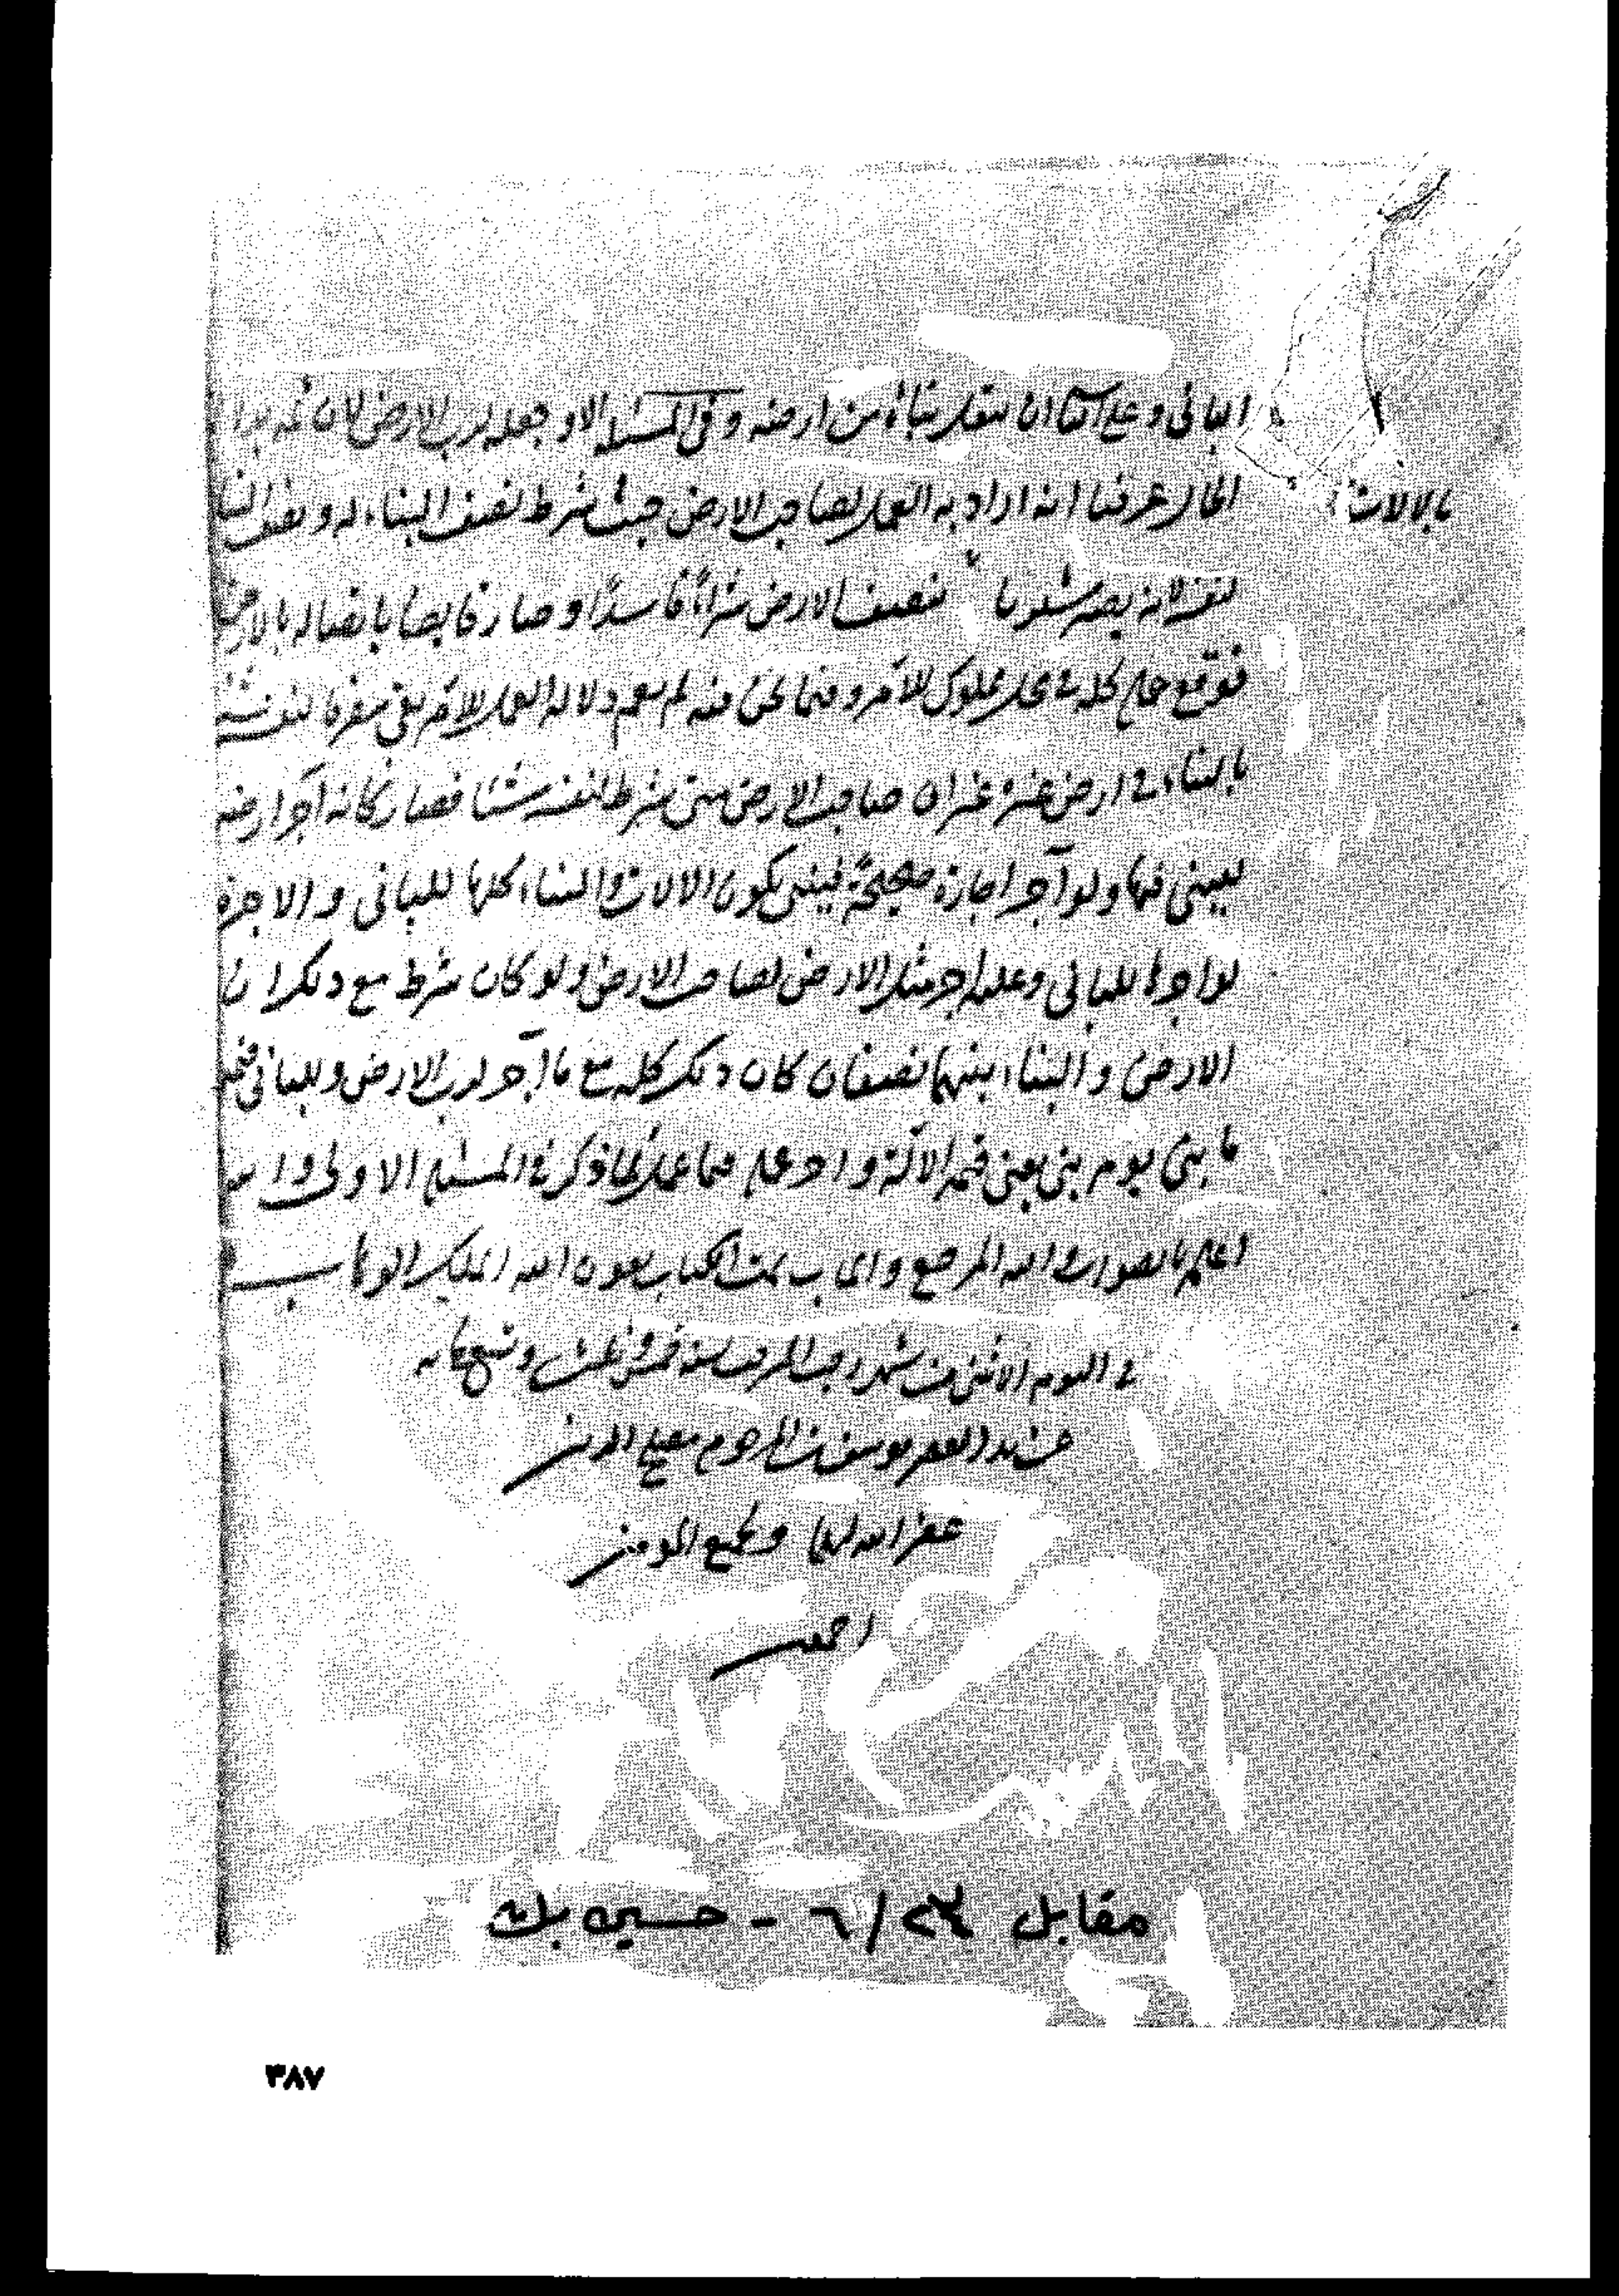 الباني وعلى الباني ان ينقل بناءه من ارضه وفي المسئلة الاولى جعله لرب الارض لان ثمة بدلالة
الحال عرفنا انه اراد به العمل لصاحب الارض حيث شرط نصف البناء له ونصف البناء
بالالات
لنفسه لانه يصير مشتريا نصف الارض شراء فاسدا وصار قابضا باتصاله بالارض
فوقع عمله كله في محل مملوك للآمر وفيما نحن فيه لم يقم دلالة العمل للآمر بقي متصرفا لنفسه
بالبناء في ارض غيره غير ان صاحب الارض متى شرط لنفسه شيئا فصار كانه آجر ارضه
ليبني فيها ولو آجر اجارة صحيحة فبنى يكون الالات والبناء كلها للباني والاجرة
لو اجرها للباني وعليه اجر مثل الارض لصاحب الارض ولو كان شرط مع ذلك ان
الارض والبناء بينهما نصفان كان ذلك كله مع ما آجر لرب الارض وللباني قيمة
ما بنى يوم بنى يعني قيمة الآلة واجر عمله فيما عمل لما ذكر في المسئلة الاولى والله
اعلم بالصواب واليه المرجع والمآب تمت الكتاب بعون الله الملك الوهاب
في اليوم الاثنين من شهر رجب المرجب سنة وتسعمايه
عن يد الفقير يوسف بن المرحوم مصلح الدين
غفر الله لهما ولجميع المؤمنين
اجمعين
مقابل ٢٣/٦ - حسين بك
٣٨٧